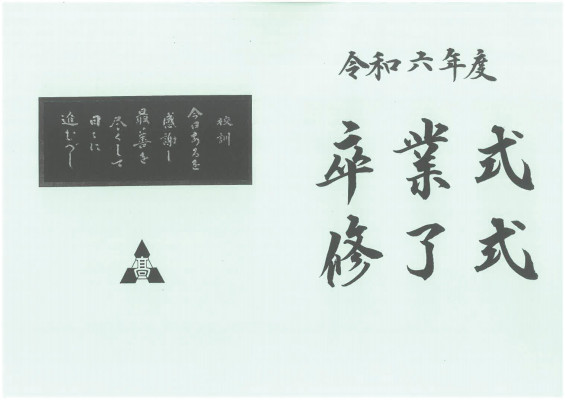 令和六年度
卒業式
修了式
校訓
今日あるを
感謝し
最善を
尽くして
日々に
進むべし
高